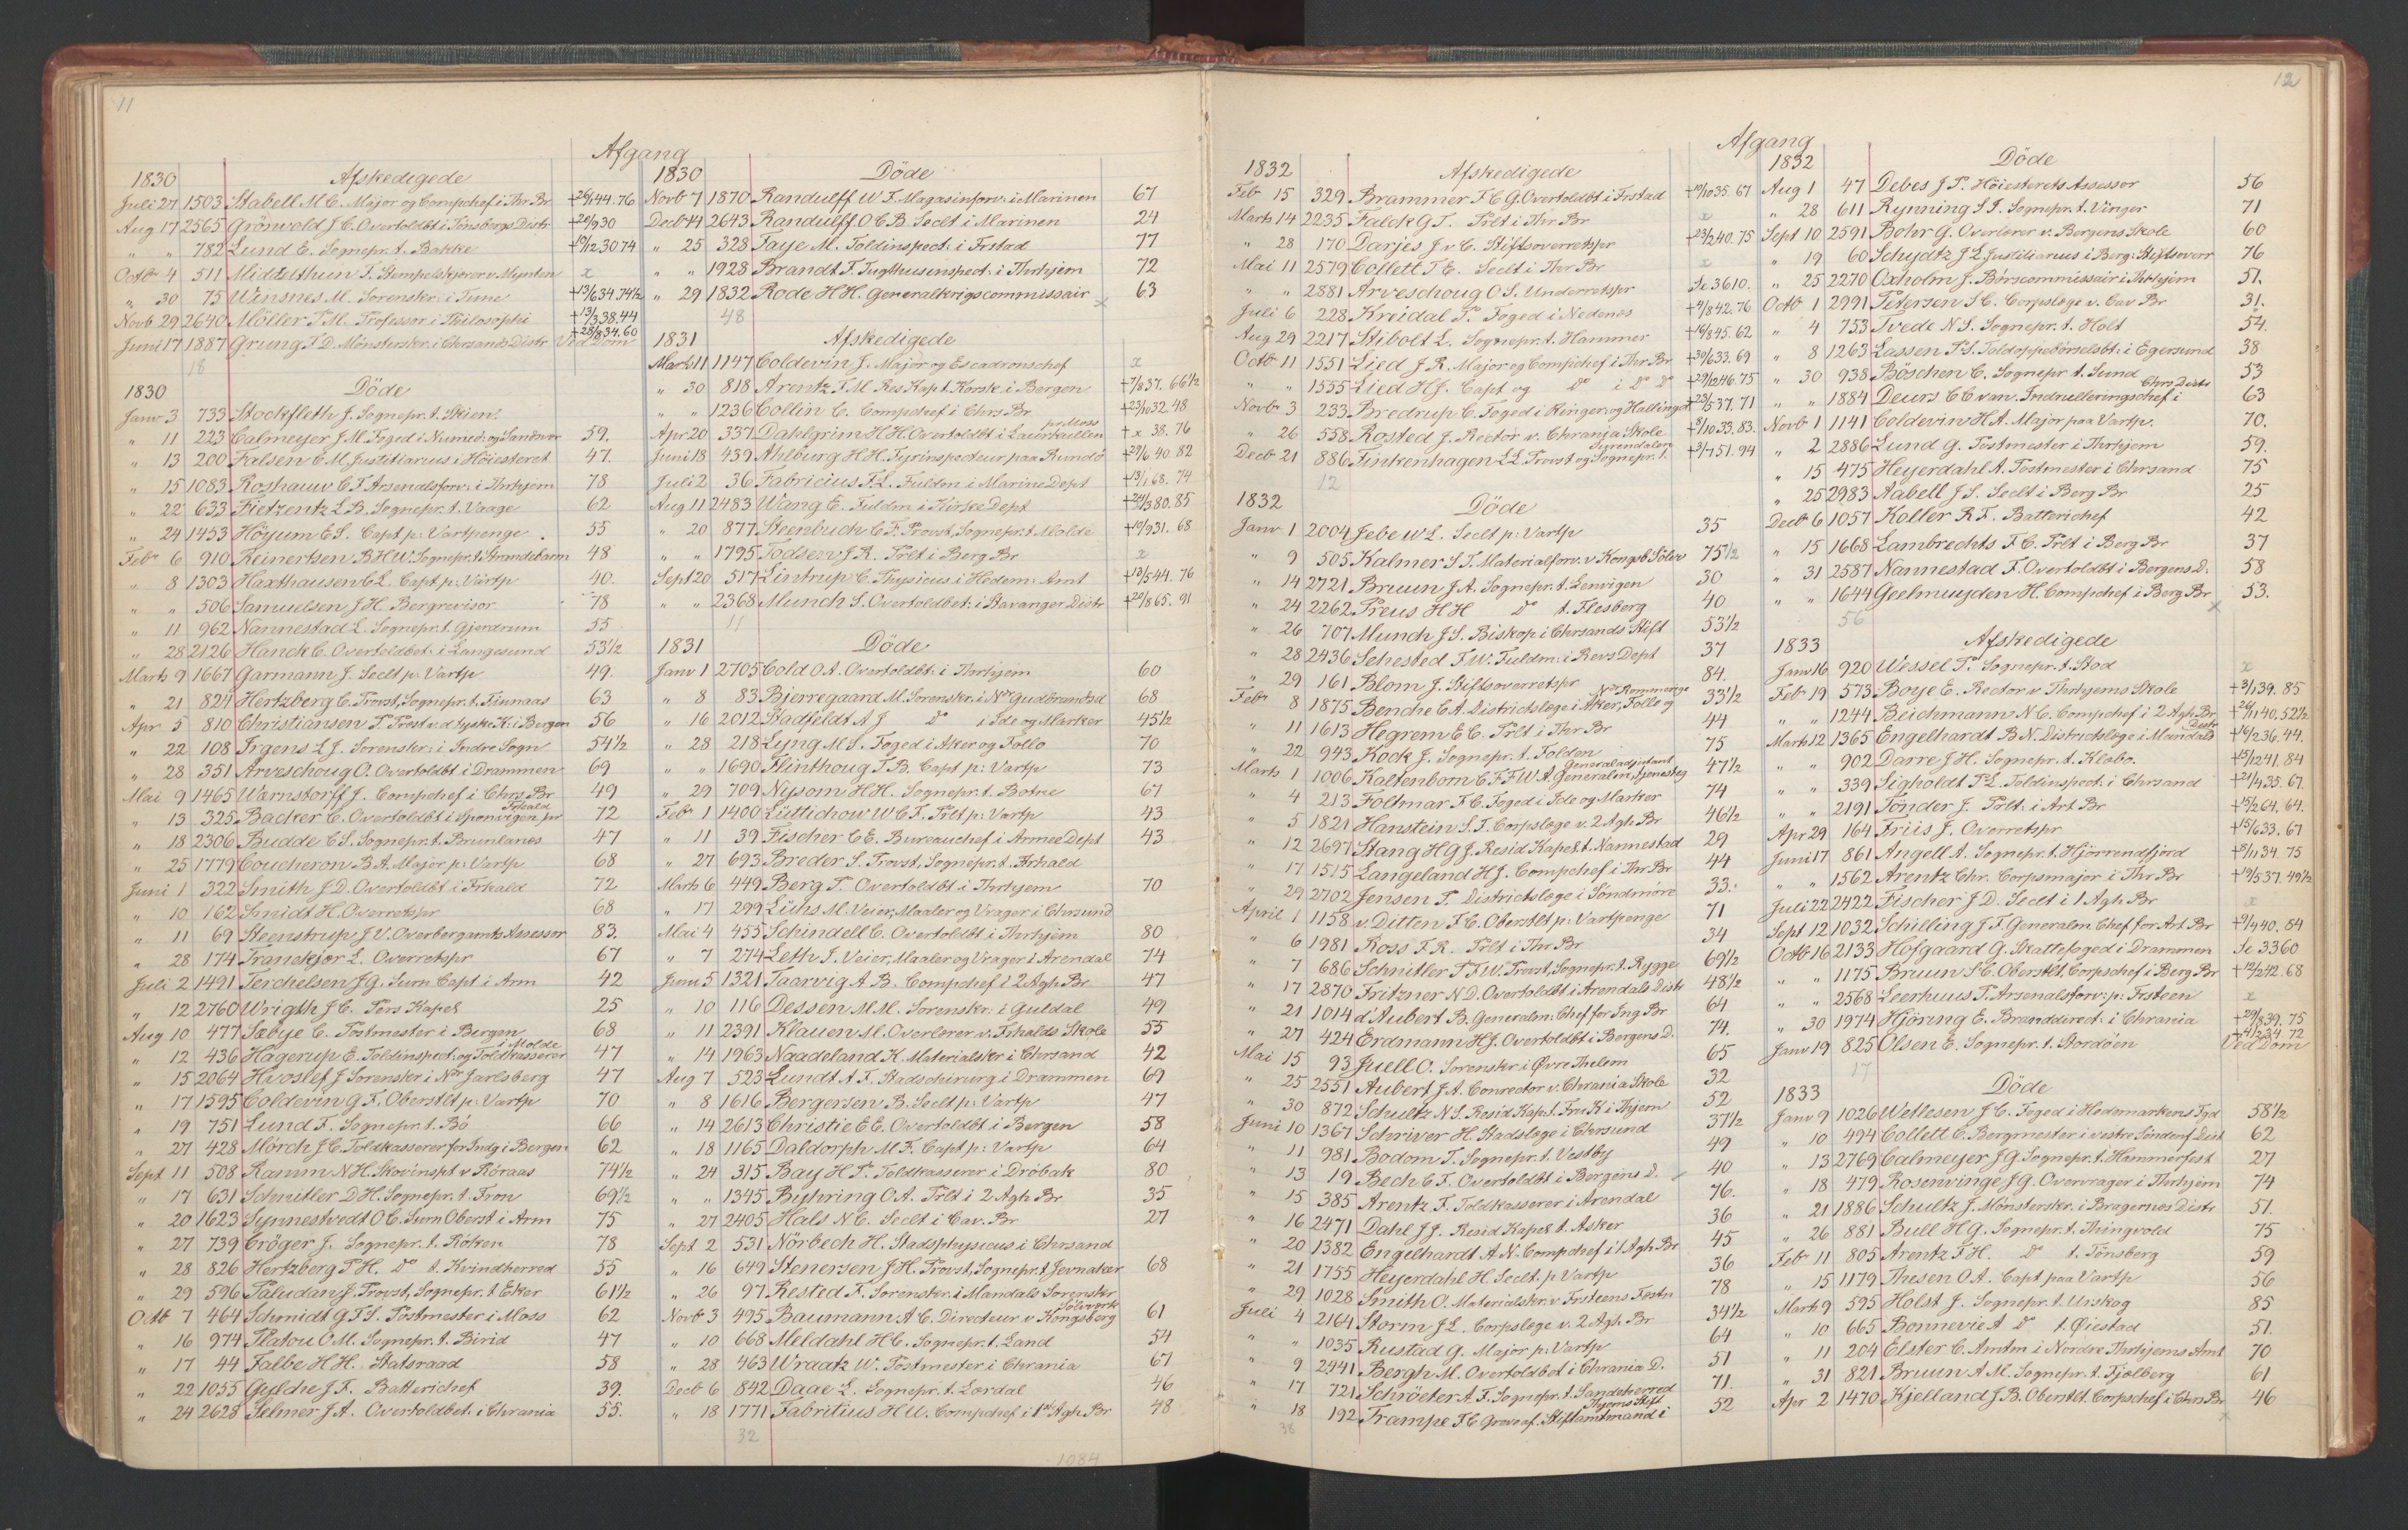 11
Afgang
1830 Afskedigede
Juli 27 1503 Stabell M C. Major og Compchef i Thr Br +26/1 44. 76
Aug 17 2565 Grönvold J C. Overtoldbt i Tönsbergs Distr +20/9 30
" " 782 Lund E. Sognepr. t. Bakke
Octb 4 511 Middelthun T. Stempelskjærer v. Mynten x
" 30 75 Winsnes M. Sorenskr: i Tune +13/6 34. 74½
Novb 29 2640 Möller P M. Professor i Philosophi +13/3 38. 44
Juni 17 1887 Grung F D. Mönsterskr. i Chrsands Distr +28/8 34. 60 Ved Dom
18
1830 Döde
Janv 3 733 Stockfleth J. Sognepr. t. Skien
" 11 223 Calmeyer J M. Foged i Numed: og Sandsvær 59.
" 13 200 Falsen C M. Justitiarius i Höiesteret 47.
" 15 1083 Roshauw C F. Arsenalsforv: i Thrhjem 78
" 22 633 Fietzentz L B. Sognepr. t. Vaage 62
" 24 1453 Höyum E S. Capt p: Vartpenge 55
Febr 6 910 Reinertsen B H W. Sognepr. t. Strandebarm 48
" 8 1303 Haxthausen C L. Capt p: Vartp 40.
" " 506 Samuelsen J H. Bergrevisor 78
" 11 962 Nannestad L. Sognepr. t. Gjerdrum 55
" 28 2126 Hanck C. Overtoldbet: i Langesund 53½
Marts 9 1667 Garmann J. Seclt p: Vartp 49.
" 21 827 Hertzberg C. Provst, Sognepr. t. Finnaas 63
Apr 5 810 Christiansen P. Præst v. d. tyske K. i Bergen 56
" 22 108 Irgens L J. Sorenskr: i Indre Sogn 54½
" 28 351 Arveschoug O. Overtoldbt i Drammen 69
Mai 9 1465 Warnstorff J. Compchef i Chrs Br 49
" 13 325 Backer C. Overtoldbt i Sponvigen pr Frhald 72
" 18 2306 Budde C S. Sognepr. t. Brunlanes 47
" 25 1779 Coucheron B A. Major p: Vartp 68
Juni 1 322 Smith J D. Overtoldbt i Frhald 72
" 10 162 Smidt H. Overretspr 68
" 11 69 Steenstrup J V. Overbergamts Assessor 83.
" 28 174 Tranekjær L. Overretspr 67
Juli 2 1491 Terchelsen J G. Surn Capt i Arm 42
" 12 2760 Wrigth J C. Pers Kapel 25
Aug 10 477 Sæbye C. Postmester i Bergen 68
" 12 436 Hagerup E. Toldinspect: og Toldkasserer i Molde 47
" 15 2064 Hvoslef J. Sorenskr i Nr Jarlsberg 47
" 17 1395 Coldevin G F. Oberstlt p: Vartp 70
" 19 751 Lund F. Sognepr. t. Bö 66
" 27 428 Mörch J C. Toldkasserer for Indg i Bergen 62
Sept 11 508 Ramm N H. Skovinspt v. Röraas 74½
" 17 631 Schnitler D H. Sognepr. t. Fron 69½
" 20 1623 Synnestvedt O C. Surn Oberst i Arm 75
" 27 739 Cröger J. Sognepr. t. Röken 78
" 28 826 Hertzberg P H. Do t. Kvindherred 55
" 29 596 Paludan J. Provst, Sognepr. t. Eker 61½
Octb 7 464 Schmidt G F S. Postmester i Moss 62
" 16 974 Platou C M. Sognepr. t. Birid 47
" 17 44 Falbe H H. Statsraad 58
" 22 1055 Gyldche J F. Batterichef 39.
" 24 2628 Selmer J A. Overtoldbet: i Chrania 55.
1830 Döde
Novb 7 1870 Randulff W F. Magasinforv: i Marinen 67
Decb 14 2643 Randulff O C B. Seclt i Marinen 24
" 25 328 Faye M. Toldinspect: i Frstad 77
" " 1928 Brandt F. Tugthusinspect: i Thrhjem 72
" 29 1832 Rode H H. Generalkrigscommissair 63
48 x
1831 Afskedigede
Marts 11 1147 Coldevin J. Major og Escadronschef x
" 30 818 Arentz F M. Res Kap t. Korsk i Bergen +7/8 37. 66½
" " 1236 Collin C. Compchef i Chrs Br +23/10 32. 48
Apr 20 337 Dahlgrim H H. Overtoldbt i Laurkullen pr Moss + x 38. 76
Juni 18 439 Ahlburg H H. Fyrinspecteur paa Rundö +27/6 40. 82
Juli 2 36 Fabricius F L. Fuldm i Marine Dept +13/1 68. 74
Aug 11 2483 Wang E. Fuldm i Kirke Dept +22/3 80. 85
" 20 877 Steenbuch C F. Provst, Sognepr. t. Molde +10/9 31. 68
" " 1795 Todsen J R. Prlt i Berg Br x
Sept 20 517 Lintrup C. Physicus i Hedem: Amt +13/5 44. 76
" " 2368 Munch S. Overtoldbet: i Stavanger Distr +20/8 65. 91
11
1831 Döde
Janv 1 2705 Cold O A. Overtoldbt: i Thrhjem 60
" 8 83 Bjerregaard M. Sorenskr. i Nr Gudbrandsd 68
" 16 2012 Stadfeldt A J Do i Ide og Marker 45½
" 28 218 Lyng M S. Foged i Aker og Follo 70
" " 1690 Flinthoug T B. Capt p: Vartp 73
" 29 709 Nysom H H. Sognepr. t. Botne 67
Febr 1 1400 Lüttichow W C F. Prlt p: Vartp 43
" 11 39 Fischer C E. Bureauchef i Armee Dept 43
" 27 693 Breder S. Provst, Sognepr. t. Frhald
Marts 6 449 Berg P. Overtoldbt i Thrhjem 70
" 17 299 Lühs M. Veier, Maaler og Vrager i Chrsund
Mai 4 455 Schindell C. Overtoldbt i Thrhjem 80
" 7 274 Leth J. Veier, Maaler og Vrager i Arendal 74
Juni 5 1321 Taarvig A B. Compchef i 2 Agh Br 47
" 10 116 Dessen M M. Sorenskr: i Guldal 49
" 11 2391 Klauen M. Overlærer v. Frhalds Skole 55
" 14 1963 Naadeland K. Materialskr i Chrsand 42
Aug 7 523 Lundt A F. Stadschirurg i Drammen 69
" 8 1616 Bergersen B. Seclt p: Vartp 47
" 14 2613 Christie E E. Overtoldbt i Bergen 58
" 18 1165 Daldorph M F. Capt p: Vartp 64
" 24 315 Bay H P. Toldkasserer i Dröbak 80
" " 1345 Byhring O A. Prlt i 2 Agh Br 35
" 27 2405 Hals N C. Seclt i Cav. Br 27
Sept 2 531 Nörbech H. Stadsphysicus i Chrsand
" 16 649 Stenersen J H. Provst, Sognepr. t. Jevnaker 68
" 26 97 Rested F. Sorenskr. i Mandals Sorenskr
Novb 3 495 Baumann A C. Directeur v. Kongsberg Sölvverk 61
" 10 668 Meldahl H C. Sognepr. t. Land 54
" 28 463 Wraatz W. Postmester i Chrania 67
Decb 6 842 Daae L. Sognepr. t. Lærdal 46
" 18 1771 Fabritius H U. Compchef i 1ste Agh Br 48
32
1084
12
Afgang
1832 Afskedigede
Feb 15 329 Brammer F C G. Overtoldbt i Frstad +10/10 35. 67
Marts 14 2235 Falck G T. Prlt i Thr Br x
" 28 170 Darjes J v C. Stiftsoverretspr +23/2 40. 75
Mai 11 2579 Collett T E. Seclt i Thr Br x
" " 2881 Arveschoug O S. Underretspr Se 3610.
Juli 6 228 Kreidal P. Foged i Nedenes +9/8 42. 76
Aug 29 2217 Stibolt L. Sognepr. t. Hammer +16/8 45. 62
Octb 11 1551 Lied J R. Major og Compchef i Thr Br +30/6 33. 69
" " 1555 Lied H J. Capt og Do i Do Do +29/12 46. 75
Novbr 3 233 Bredrup C. Foged i Ringer: og Hallingd +23/5 37. 71
" 26 558 Rosted J. Rector v. Chrania Skole +3/10 33. 83.
Decb 21 886 Finkenhagen L L. Provst og Sognepr. t. Surendalen +3/7 51. 94
12
1832 Döde
Janv 1 2004 Jebe W L. Seclt p: Vartp 35
" 9 505 Kalmer S T. Materialforv. v. Kongsb Sölvv 75½
" 14 2721 Bruun J A. Sognepr. t. Lenvigen 30
" 24 2262 Preus H H Do t. Flesberg 40
" 26 707 Munch J S. Biskop i Chrsands Stift 53½
" 28 2436 Sehested F W. Fuldm: i Revs Dept 37
" 29 161 Blom J. Stiftsoverretspr 84.
Febr 8 1875 Benche C A. Districtslæge i Aker, Follo og Nr Romerige 33½
" 11 1613 Hegrem E C. Prlt i Thr Br 44
" 22 943 Kock J. Sognepr. t. Folden 75
Marts 1 1006 Kaltenborn C F F W A. Generalm, tjenestg Generaladjutant 47½
" 4 213 Foltmar F C. Foged i Ide og Marker 74
" 5 1821 Hanstein S T. Corpslæge v. 2 Agh Br 46½
" 12 2697 Stang H G J. Resid Kapel t. Nannestad 29
" 17 1515 Langeland H J. Compchef i Thr Br 44
" 29 2702 Jensen P. Districtslæge i Söndmöre 33.
April 1 1158 v. Ditten F C. Oberstlt p: Vartpenge 71
" 6 1981 Ross F R. Prlt i Thr Br 34
" 7 686 Schnitler P F W. Provst, Sognepr. t. Rygge 69½
" 17 2870 Fritzner N D. Overtoldbt i Arendals Distr 48½
" 21 1014 d'Aubert B. Generalm: Chef for Ing Br 64
" 27 424 Erdmann H J. Overtoldbt i Bergens D. 74.
Mai 15 93 Juell O. Sorenskr i Øvre Thelem 65
" 25 2551 Aubert J A. Conrector v. Chrania Skole 32
" 30 872 Schultz N S. Resid Kap. t. Frue K i Thjem 52
Juni 10 1367 Schriver H. Stadslæge i Chrsund 37½
" 11 981 Bodom T. Sognepr. t. Vestby 49
" 13 19 Bech E F. Overtoldbt i Bergens D. 40
" 15 385 Arentz F. Toldkasserer i Arendal 76.
" 16 2471 Dahl J J. Resid Kapel t. Asker 36
" 20 1382 Engelhardt A N. Compchef i 1 Agh Br 45
" 21 1755 Heyerdahl H. Seclt. p. Vartp 36
" 29 1028 Smith O. Materialskr. v Frsteens Festn 78
Juli 4 2164 Storm J L. Corpslæge v. 2 Agh Br 34½
" " 1035 Rustad G. Major p: Vartp 64
" 9 2441 Bergh M. Overtoldbet i Chrania D. 51
" 17 721 Schröeter A F. Sognepr. t. Sandeherred 71.
" 18 192 Trampe F C Greve af. Stiftamtmand i Thjems Stift 52
38
1832 Döde
Aug 1 47 Debes J P. Höiesterets Assessor 56
" 28 611 Rynning S P. Sognepr. t. Vinger 71
Sept 10 2591 Bohr G. Overlærer v. Bergens Skole 60
" 19 60 Schydtz J L. Justitiarius i Berg: Stiftsoverr 76
" 25 2270 Oxholm J. Börscommissair i Thrhjem 51.
Octb 1 2991 Petersen S C. Corpslæge v. Cav Br 31.
" 4 753 Tvede N S. Sognepr. t. Holt 54.
" 8 1263 Lassen P S. Toldoppebörselsbt: i Egersund 38
" 30 938 Böschen C. Sognepr t. Sund 53
" " 1884 Deurs C C van. Indrulleringschef i Chrs Distr 63
Novb 1 1141 Coldevin H A. Major paa Vartp. 70.
" 2 2886 Lund G. Postmester i Thrhjem 59.
" 15 475 Heyerdahl A. Postmester i Chrsand 75
" 25 2983 Aabell J S. Seclt i Berg Br 25
Decb 6 1057 Koller R F. Batterichef 42
" 15 1668 Lambrechts F C. Prlt i Berg Br 37
" 31 2587 Nannestad F. Overtoldbt i Bergens D. 58
" " 1644 Geelmuyden H. Compchef i Berg Br 53.
56 x
1833 Afskedigede
Janv 16 920 Wessel P. Sognepr. t. Stod x
Feb 19 573 Boye E. Rector v. Thrhjems Skole +3/1 39. 85
" " 1244 Beichmann N C. Compchef i 2 Agh Br +26/11 40. 52½
Marts 12 1365 Engelhardt B N. Districtslæge i Mandals Distr +16/2 36. 44.
" " 902 Darre J H. Sognepr. t. Klæbo. +15/12 41. 84
" " 339 Sigholdt P L. Toldinspect: i Chrsand +21/4 35. 67.
" " 2191 Tönder J. Prlt. i Art Br +15/2 64. 64.
Apr 29 164 Friis J. Overretspr +15/6 33. 67
Juni 17 861 Angell A. Sognepr. t. Hjörrendfjord +5/11 34. 75
" " 1562 Arentz Chr. Corpsmajor i Thr Br +19/5 37. 49½
Juli 22 2422 Fischer J D. Seclt i 1 Agh Br x
Sept 12 1032 Schilling J F. Generalm Chef for Art Br +9/4 40. 84
Octb 16 2133 Hofgaard G. Skattefoged i Drammen Se 3360
" " 1175 Bruun S C. Oberstlt. Corpschef i Berg Br +12/2 42. 68
" " 2568 Leerhuus P. Arsenalsforv: p: Frsteen x
" 30 1974 Hjöring E. Branddirect: i Chrania +29/8 39. 75
Janv 19 825 Olsen E. Sognepr. t. Stordöen +4/12 34. 72 Ved Dom
17
1833 Döde
Janv 9 1026 Wetlesen J C. Foged i Hedemarkens Fgd 58½
" 10 494 Collett C. Bergmester i vestre Söndenf Dist 62
" 13 2769 Calmeyer J G. Sognepr. t. Hammerfest 27
" 18 479 Rosenvinge J G. Overvrager i Thrhjem 74
" 21 1886 Schultz J. Mönsterskr. i Bragernes Distr 57.
" 26 881 Bull H G. Sognepr. t. Thingvold 75
Febr 11 805 Arentz F H. Do t. Tönsberg 59
" 15 1179 Thesen O A. Capt paa Vartp 56
Marts 9 595 Holst J. Sognepr. t. Urskog 85
" 10 665 Bonnevie A Do t. Øiestad 51.
" 11 204 Elster C. Amtm i Nordre Thrhjems Amt 70
" 31 821 Bruun A M. Sognepr. t. Fjelberg 61
Apr 2 1470 Kjelland J B. Oberstlt. Corpschef i Chrs Br 46
x